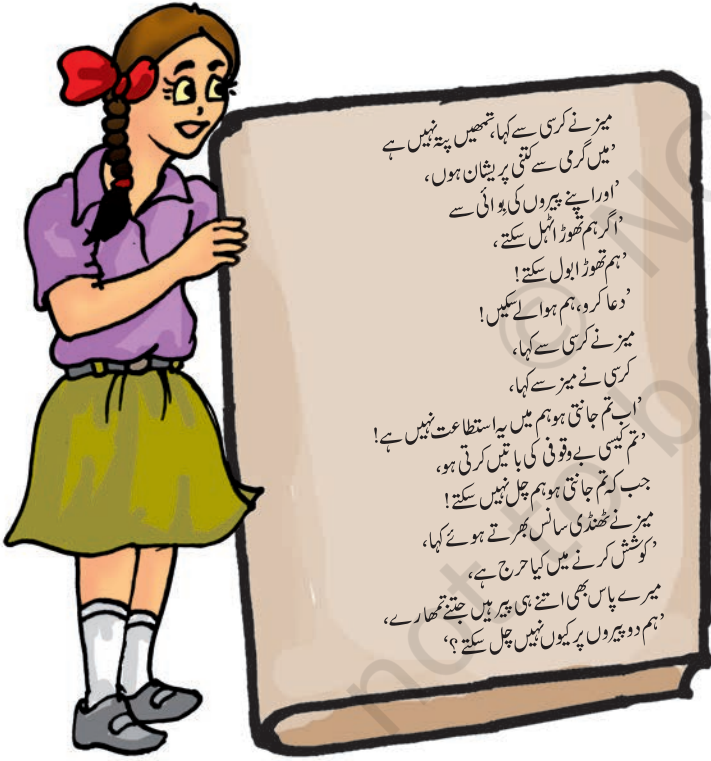 میز نے کرسی سے کہا، تمھیں پتہ نہیں ہے
’میں گرمی سے کتنی پریشان ہوں،
’اور اپنے پیروں کی بِوائی سے
’اگر ہم تھوڑا ٹہل سکتے،
’ہم تھوڑا بول سکتے!
’دعا کرو، ہم ہوا لے سکیں!
میز نے کرسی سے کہا،
کرسی نے میز سے کہا،
’اب تم جانتی ہو ہم میں یہ استطاعت نہیں ہے!
’تم کیسی بے وقوفی کی باتیں کرتی ہو،
جب کہ تم جانتی ہو ہم چل نہیں سکتے!
میز نے ٹھنڈی سانس بھرتے ہوئے کہا،
’کوشش کرنے میں کیا حرج ہے،
میرے پاس بھی اتنے ہی پیر ہیں جتنے تمھارے،
’ہم دو پیروں پر کیوں نہیں چل سکتے؟‘
not to be
©